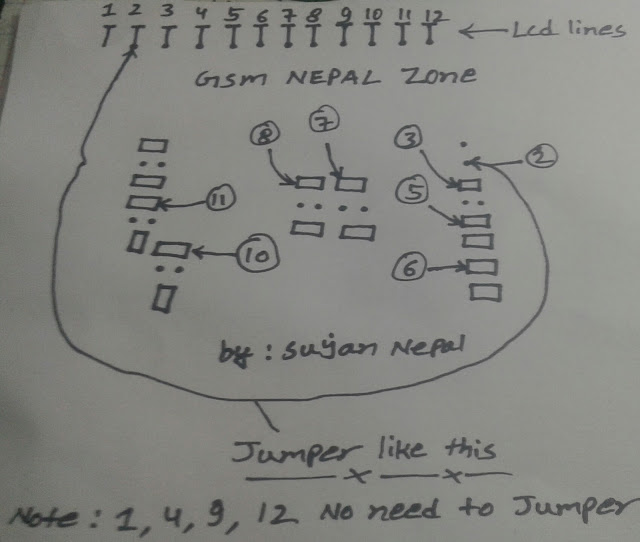 1 2 3 4 5 6 7 8 9 10 11 12
Lcd lines
GSM NEPAL Zone
8 7 3 2
11 5
10 6
by: Sujan Nepal
Jumper like this
Note: 1, 4, 9, 12 No need to Jumper